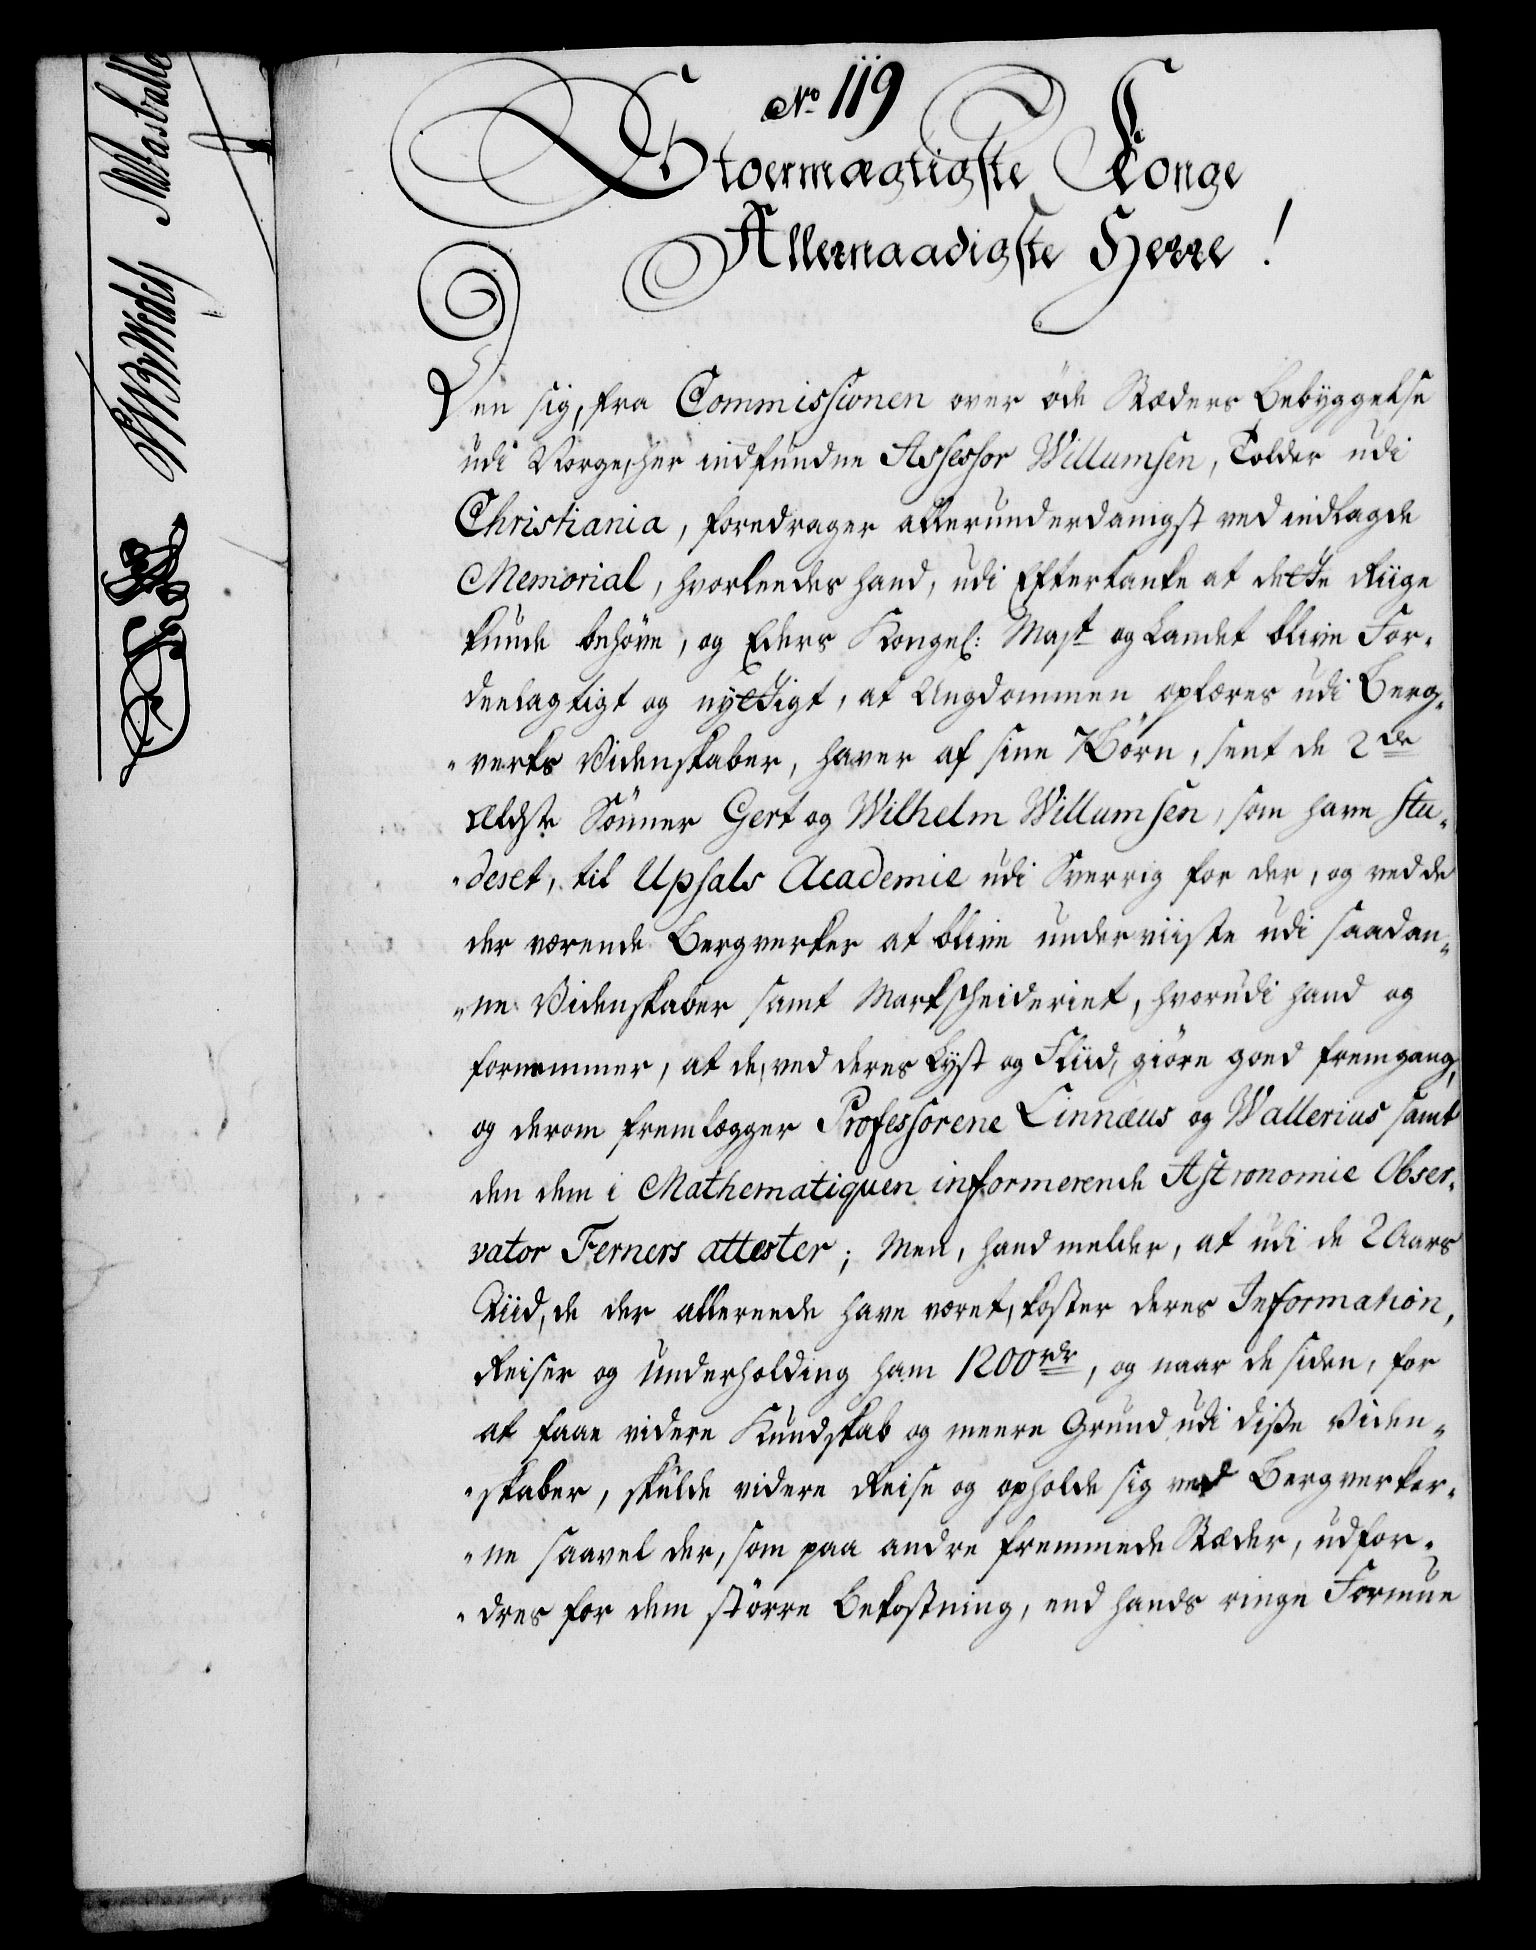 No 119
Stoermægtigste Konge
Allernaadigste Herre!
Den sig, fra Commissionen over öde Stæders Bebÿggelse
udi Norge, her indfundne Assessor Willumsen, Tolder udi
Christiania, foredrager allerunderdanigst ved indlagde
Memorial, hvorleedes hand, udi Eftertanke at dette Riige
kunde behöve, og Eders Kongel: Mayst og Landet blive For-
deelagtigt og nyttigt, at Ungdommen oplæres udi Berg-
-verks Videnskaber, haver af sine 7 Börn, sent de 2de
ældste Sönner Gert og Wilhelm Willumsen, som have stu-
-deret, til Upsals Academie udi Sverrig for der, og ved de
der værende Bergverker at blive underviiste udi saadan-
-ne Videnskaber samt Markscheideriet, hvorudi hand og
fornemmer, at de, ved deres Lyst og Fliid, giöre goed fremgang,
og derom fremlægger Professorene Linnæus og Wallerius samt
den dem i Mathematiquen informerende Astronomie Obser-
vator Ferners attester; Men, hand melder, at udi de 2 Aars
Tiid, de der allereede have været, koster deres Information,
Reiser og Underholding ham 1200 rdr, og naar de siden, for
at faae videre Kundskab og meere Grund udi disse Viden-
-skaber, skulde videre Reise og opholde sig ved Bergverker-
-ne saavel der, som paa andre fremmede Stæder, udfor-
-dres for dem större Bekostning, end hands ringe Formue